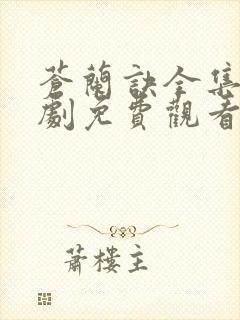 蒼蘭訣全集
劇免費觀看
蕭樓主